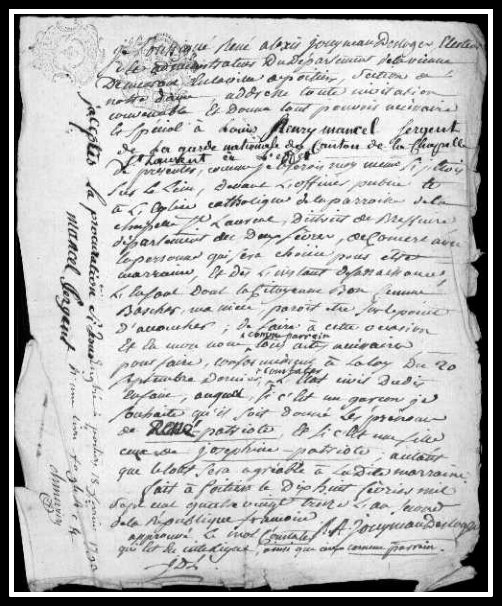 je soussigné René alexis Jouyneau Desloges Electeur
et administrateur du departement de la vienne
Demeurant en la ville de poitiers, section de
notre dame, adresse toute invitation
convenable et donne tout pouvoir nécessaire
et special à Louis Henry mancel Sergent
de la garde nationale du Canton de La Chapelle
St Laurent
de presenter, comme je ferois moy même si j'étois
sur le Lieu, devant L'officier public et
à L'Eglise catholique de la parroisse de la
chapelle St Laurent, District de Bressuire
departement des Deux Sèvres, de Concert avec
la personne qui sera choisie pour etre
marraine, et dès L'instant de sa naissance,
L'enfant dont la Citoyenne
ma niece paroit être sur le point
d'accoucher; de faire à cette occasion
comme parrain
et en mon nom tous actes nécessaires
pour faire, conformément à la loy du 20
Septembre dernier, constater L'Etat civil dudit
enfant, auquel si c'est un garçon je
souhaite qu'il soit donné les prénoms
de René-patriote, et si c'est une fille
ceux de Josephine-patriote, autant
que le tout sera agréable à la dite marraine
fait à Poitiers le Dix huit fevrier mil
sept cent quatre vingt treize L'an second
de la République françoise
approuvé le mot Constater R. A. Jouyneau Desloges
ainsi que ceux comme parrain.
J.D.L.
j'accepte la procuration
mancel Sergent